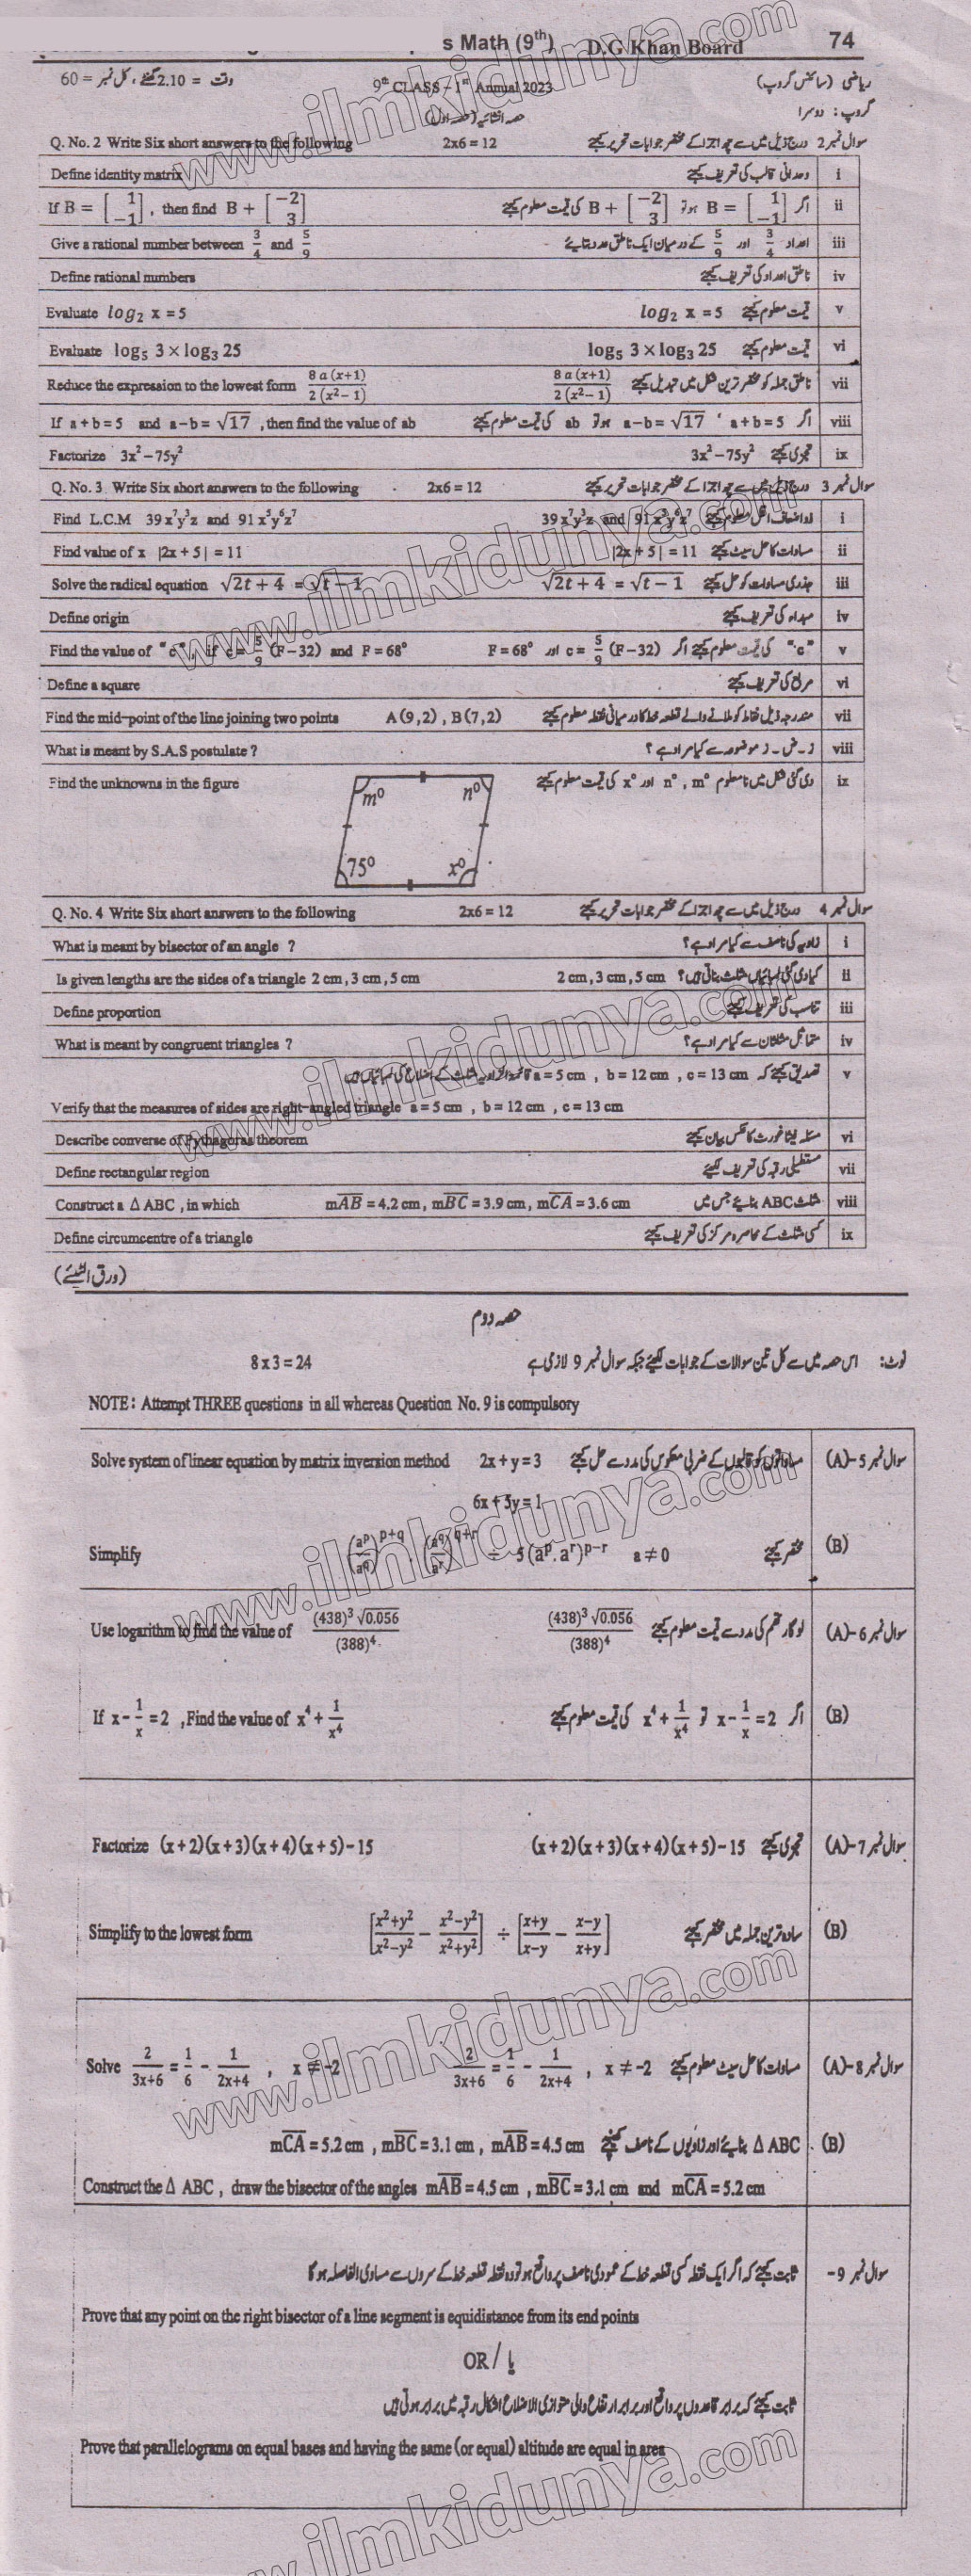 s Math (9th) D.G Khan Board 74
ریاضی (سائنس گروپ) 9th CLASS – 1st Annual 2023 وقت = 2.10 گھنٹے ، کل نمبر = 60
گروپ : دوسرا حصہ انشائیہ (حصہ اول)
Q. No. 2 Write Six short answers to the following 2x6 = 12 سوال نمبر 2 درج ذیل میں سے چھ اجزا کے مختصر جوابات تحریر کیجئے
Define identity matrix وحدانی قالب کی تعریف کیجئے i
If B = [1 -1], then find B + [-2 3] اگر B = [1 -1] ہو تو B + [-2 3] کی قیمت معلوم کیجئے ii
Give a rational number between 3/4 and 5/9 اعداد 3/4 اور 5/9 کے درمیان ایک ناطق عدد بتائیے iii
Define rational numbers ناطق اعداد کی تعریف کیجئے iv
Evaluate log₂ x = 5 قیمت معلوم کیجئے log₂ x = 5 v
Evaluate log₅ 3 × log₃ 25 قیمت معلوم کیجئے log₅ 3 × log₃ 25 vi
Reduce the expression to the lowest form 8 a (x+1) / 2 (x² – 1) ناطق جملہ کو مختصر ترین شکل میں تبدیل کیجئے 8 a (x+1) / 2 (x² – 1) vii
If a + b = 5 and a – b = √17 , then find the value of ab اگر a + b = 5 ' a – b = √17 ہو تو ab کی قیمت معلوم کیجئے viii
Factorize 3x² – 75y² تجزی کیجئے 3x² – 75y² ix
Q. No. 3 Write Six short answers to the following 2x6 = 12 سوال نمبر 3 درج ذیل میں سے چھ اجزا کے مختصر جوابات تحریر کیجئے
Find L.C.M 39x⁷y³z and 91x⁵y⁶z⁷ ذواضعاف اقل معلوم کیجئے 39x⁷y³z and 91x⁵y⁶z⁷ i
Find value of x |2x + 5| = 11 مساوات کا حل سیٹ کیجئے |2x + 5| = 11 ii
Solve the radical equation √2t + 4 = √t – 1 جذری مساوات کو حل کیجئے √2t + 4 = √t – 1 iii
Define origin مبداء کی تعریف کیجئے iv
Find the value of "c", if c = 5/9 (F–32) and F = 68° "c" کی قیمت معلوم کیجئے اگر c = 5/9 (F–32) اور F = 68° v
Define a square مربع کی تعریف کیجئے vi
Find the mid-point of the line joining two points A(9,2) , B(7,2) مندرجہ ذیل نقاط کو ملانے والے قطعہ خط کا درمیانی نقطہ معلوم کیجئے vii
What is meant by S.A.S postulate ? ض۔ز۔ض موضوعہ سے کیا مراد ہے ؟ viii
Find the unknowns in the figure دی گئی شکل میں نامعلوم m° , n° اور x° کی قیمت معلوم کیجئے ix
m° n°
75° x°
Q. No. 4 Write Six short answers to the following 2x6 = 12 سوال نمبر 4 درج ذیل میں سے چھ اجزا کے مختصر جوابات تحریر کیجئے
What is meant by bisector of an angle ? زاویہ کی ناصف سے کیا مراد ہے ؟ i
Is given lengths are the sides of a triangle 2 cm , 3 cm , 5 cm کیا دی گئی لمبائیاں مثلث بناتی ہیں ؟ 2 cm , 3 cm , 5 cm ii
Define proportion تناسب کی تعریف کیجئے iii
What is meant by congruent triangles ? متماثل مثلثان سے کیا مراد ہے ؟ iv
تصدیق کیجئے کہ a = 5 cm , b = 12 cm , c = 13 cm قائمۃ الزاویہ مثلث کے اضلاع کی لمبائیاں ہیں v
Verify that the measures of sides are right-angled triangle a = 5 cm , b = 12 cm , c = 13 cm
Describe converse of Pythagoras theorem مسئلہ فیثاغورث کا عکس بیان کیجئے vi
Define rectangular region مستطیلی رقبہ کی تعریف کیجئے vii
Construct a Δ ABC , in which mAB = 4.2 cm, mBC = 3.9 cm, mCA = 3.6 cm مثلث ABC بنایئے جس میں viii
Define circumcentre of a triangle کسی مثلث کے محاصرہ مرکز کی تعریف کیجئے ix
(ورق الٹیئے)
حصہ دوم
نوٹ: اس حصہ میں سے کل تین سوالات کے جوابات لکھئے جبکہ سوال نمبر 9 لازمی ہے 8 x 3 = 24
NOTE : Attempt THREE questions in all whereas Question No. 9 is compulsory
Solve system of linear equation by matrix inversion method 2x + y = 3 مساواتوں کو قالبوں کے ضربی معکوس کی مدد سے حل کیجئے سوال نمبر 5-(A)
6x + 5y = 1
Simplify (aᵖ/a^q)^p+q . (a^q/aʳ)^q+r ÷ 5(aᵖ.aʳ)^p–r a ≠ 0 مختصر کیجئے (B)
Use logarithm to find the value of (438)³√0.056 / (388)⁴ لوگارتھم کی مدد سے قیمت معلوم کیجئے (438)³√0.056 / (388)⁴ سوال نمبر 6-(A)
If x – 1/x = 2 , Find the value of x⁴ + 1/x⁴ اگر x – 1/x = 2 تو x⁴ + 1/x⁴ کی قیمت معلوم کیجئے (B)
Factorize (x+2)(x+3)(x+4)(x+5)–15 تجزی کیجئے (x+2)(x+3)(x+4)(x+5)–15 سوال نمبر 7-(A)
Simplify to the lowest form [x²+y²/x²–y² – x²–y²/x²+y²] ÷ [x+y/x–y – x–y/x+y] سادہ ترین جملہ میں مختصر کیجئے (B)
Solve 2/3x+6 = 1/6 – 1/2x+4 , x ≠ –2 مساوات کا حل سیٹ معلوم کیجئے 2/3x+6 = 1/6 – 1/2x+4 , x ≠ –2 سوال نمبر 8-(A)
Δ ABC بنایئے اور زاویوں کے ناصف کھینچئے mAB = 4.5 cm , mBC = 3.1 cm , mCA = 5.2 cm (B)
Construct the Δ ABC , draw the bisector of the angles mAB = 4.5 cm , mBC = 3.1 cm and mCA = 5.2 cm
ثابت کیجئے کہ اگر ایک نقطہ کسی قطعہ خط کے عمودی ناصف پر واقع ہو تو وہ نقطہ قطعہ خط کے سروں سے مساوی الفاصلہ ہوگا سوال نمبر 9-
Prove that any point on the right bisector of a line segment is equidistance from its end points
OR / یا
ثابت کیجئے کہ برابر قاعدوں پر واقع اور برابر ارتفاع والی متوازی الاضلاع اشکال رقبہ میں برابر ہوتی ہیں
Prove that parallelograms on equal bases and having the same (or equal) altitude are equal in area
www.ilmkidunya.com
www.ilmkidunya.com
www.ilmkidunya.com
www.ilmkidunya.com
www.ilmkidunya.com
www.ilmkidunya.com